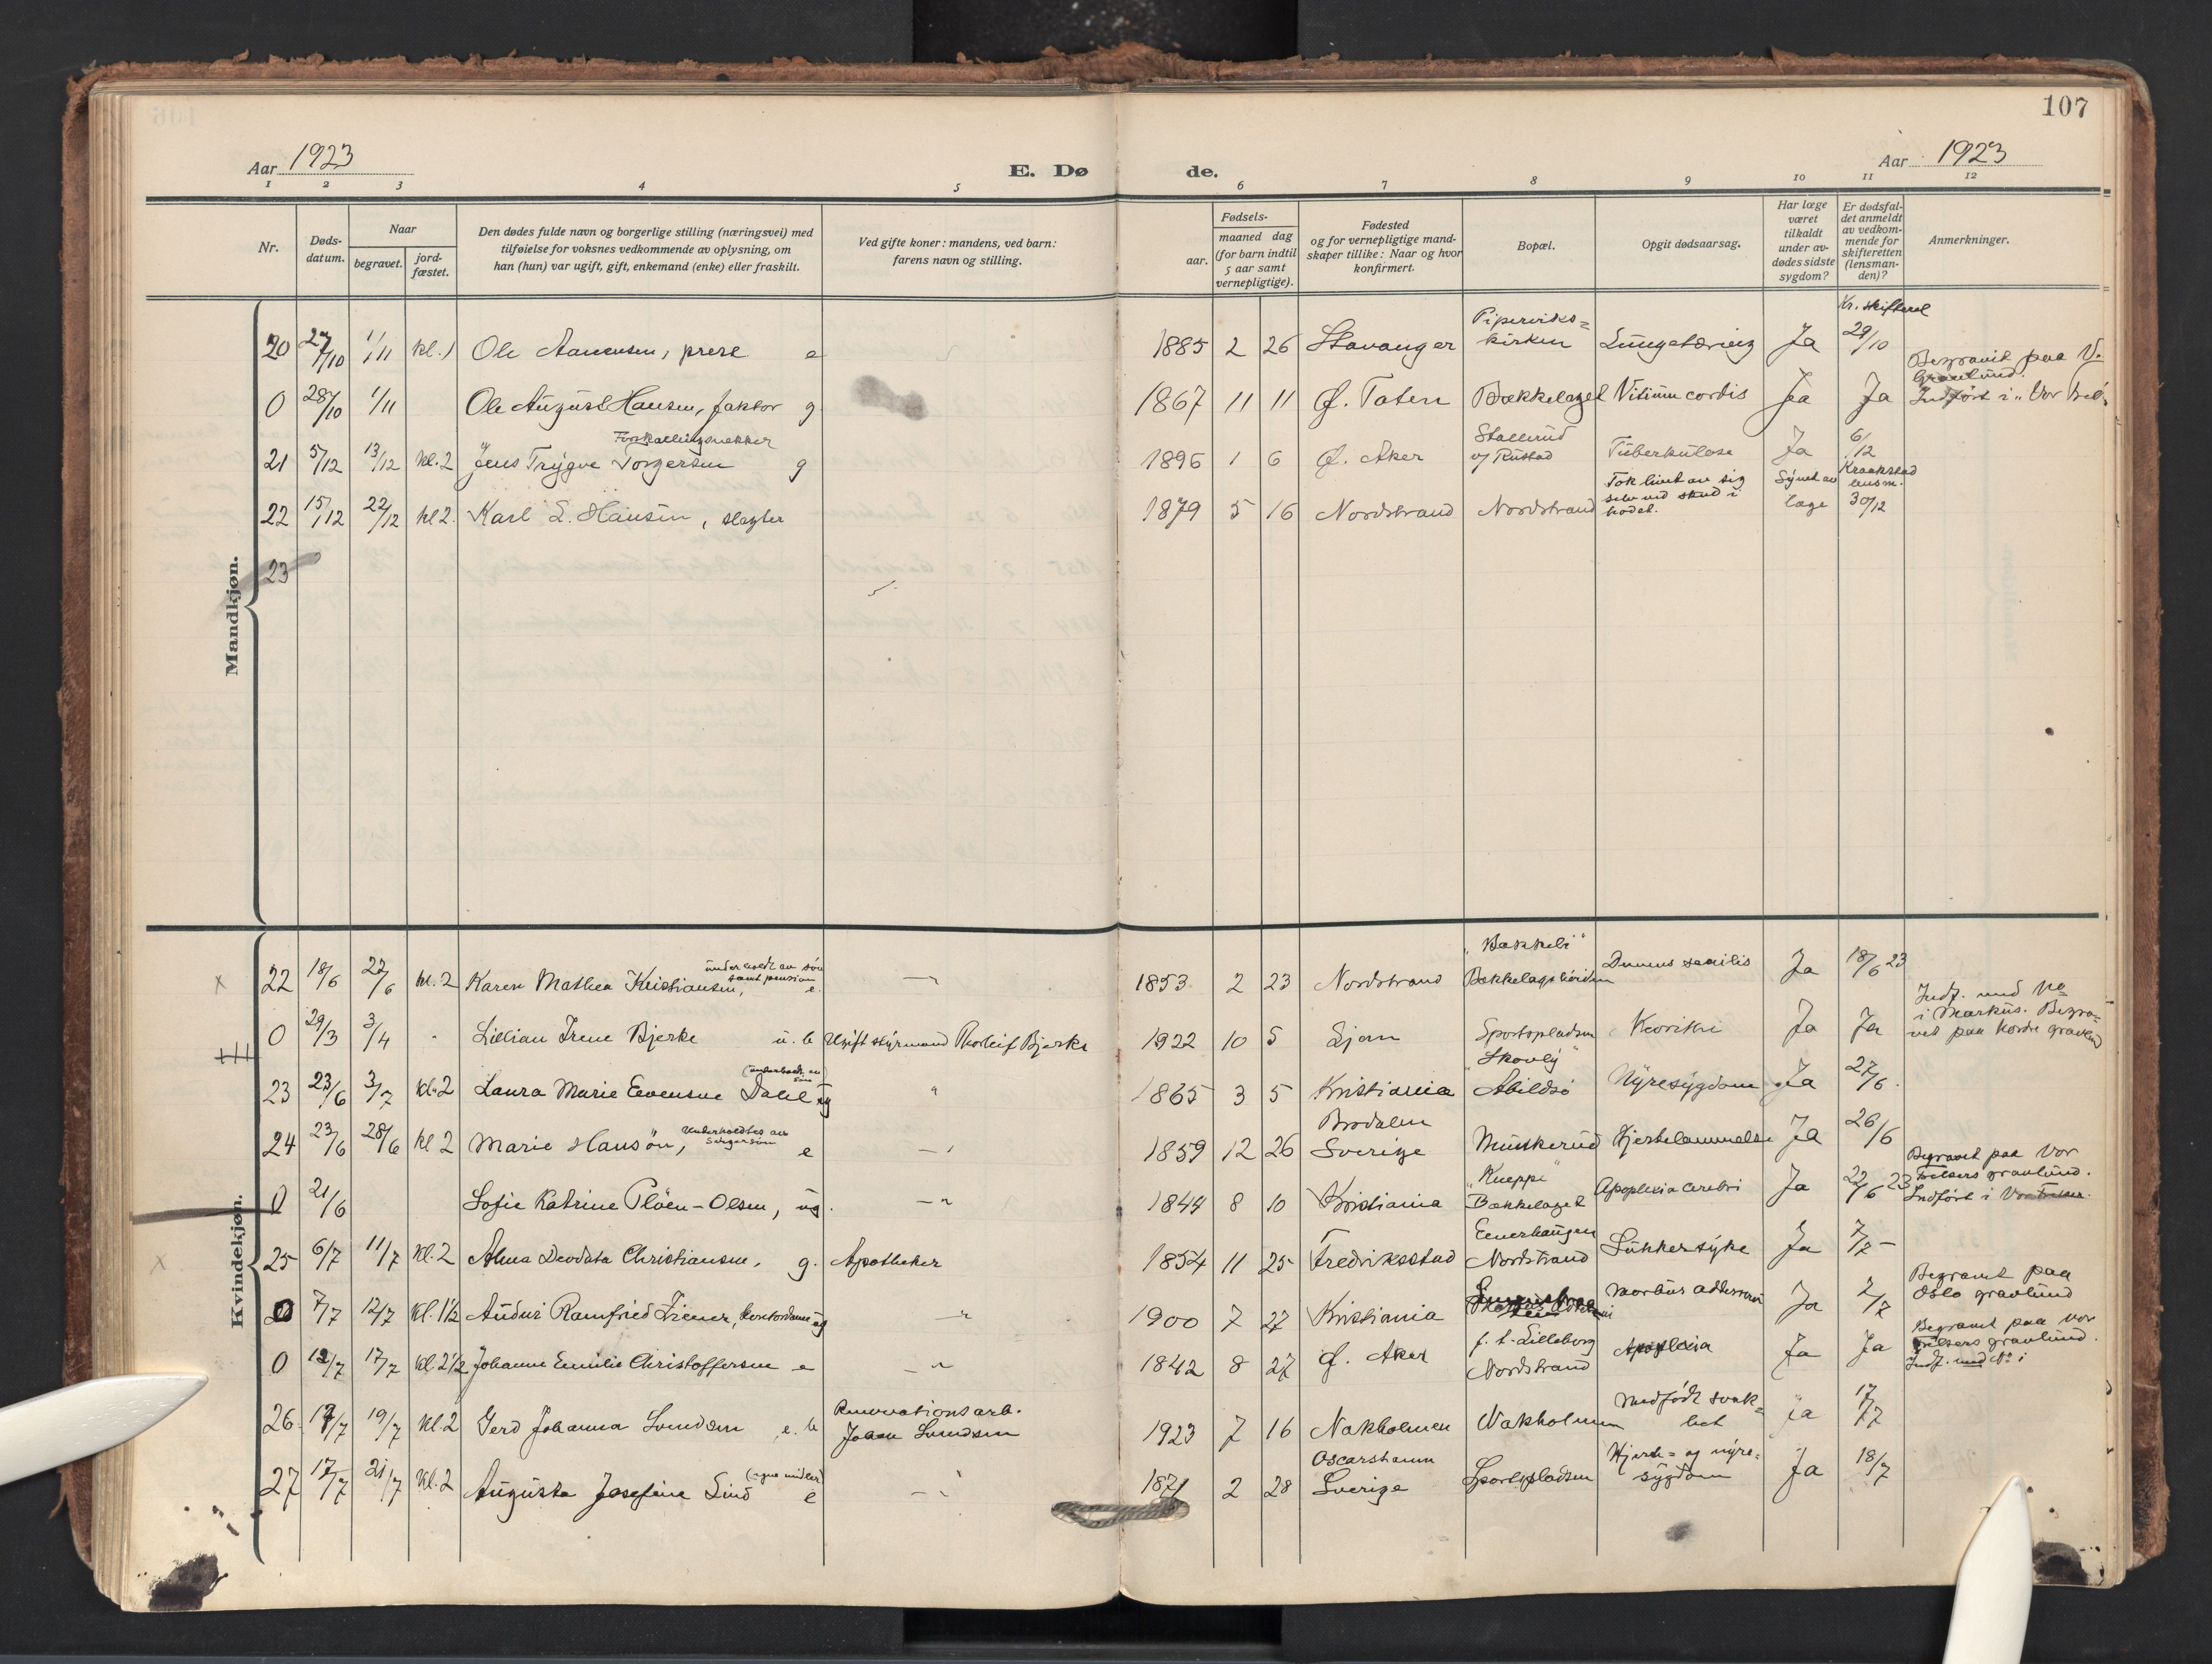 107
Aar 1923
E. Dø
de.
Aar 1923
1 2 3 4 5 6 7 8 9 10 11 12
Nr.
Døds-
datum.
Naar
begravet.
jord-
fæstet.
Den dødes fulde navn og borgerlige stilling (næringsvei) med
tilføielse for voksnes vedkommende av oplysning, om
han (hun) var ugift, gift, enkemand (enke) eller fraskilt.
Ved gifte koner: mandens, ved barn:
farens navn og stilling.
Fødsels-
aar.
maaned dag
(for barn indtil
5 aar samt
vernepligtige).
Fødested
og for vernepligtige mand-
skaper tillike: Naar og hvor
konfirmert.
Bopæl.
Opgit dødsaarsag.
Har læge
været
tilkaldt
under av-
dødes sidste
sygdom?
Er dødsfal-
det anmeldt
av vedkom-
mende for
skifteretten
(lensman-
den)?
Anmerkninger.
Mandkjøn.
20 27/10 1/11 kl. 1 Ole Aanensen, prest e 1885 2 26 Stavanger Piperviks=
kirken Lungetæring Ja Kr. skifteret
29/10
0 28/10 1/11 Ole August Hansen, faktor g. 1867 11 11 Ø. Toten Bækkelaget Vitium cordis Ja Ja Begravet paa V.
Gravlund.
Indført i "Vor Frel.
21 5/12 13/12 kl. 2 Jens Trygve Torgersen g 1896 1 6 Ø. Aker Stallerud
v/ Rustad Tuberkulose Ja 6/12
22 15/12 22/12 kl 2. Karl L. Hansen, slagter 1879 5 16 Nordstrand Nordstrand Tok livet av sig
selv ved skud i
hodet. Synet av
læge Kraakstad
lensm.
30/12
23
Kvindekjøn.
22 18/6 22/6 kl. 2 Karen Mathea Kristiansen, underholdt av søn
samt pension e. 1853 2 23 Nordstrand "Bakkeli"
Bækkelagshøiden senilis Ja 18/6 23
0 29/3 3/4 Lillian Irene Bjerke u. b Ugift styrmand Thorleif Bjerke 1922 10 5 Ljan Sportspladsen Ja Ja Indf. med No
i Markus. Begra=
vet paa Nordre gravlund
23 23/6 3/7 kl. 2 Laura Marie Evensen Dahl ug (underholdt av
søn) 1865 3 5 Kristiania "Skovly"
Abildsø Nyresygdom Ja 27/6.
24 23/6 28/6 kl 2 Marie Hansøn, Underholdtes av
svigersøn e 1859 12 26 Brodalen
Sverige Munkerud Hjertelammelse Ja 26/6
0 21/6 Sofie Katrine Pløen-Olsen, ug. 1844 8 10 Kristiania "Kneppe"
Bækkelaget Apoplexia cerebri Ja 22/6 23 Begravet paa Vor
Frelsers gravlund.
Indført i Vor Frelser.
25 6/7 11/7 kl. 2 Alma Deodata Christiansen, g. Apotheker 1854 11 25 Fredriksstad Enerhaugen
Nordstrand Sukkersyke Ja 7/7 -
0 7/7 12/7 kl. 1½ Audur Ramfried Ziener, kontordame ug 1900 7 27 Kristiania Morbus addisonii Ja 2/7 Begravet paa
Oslo gravlund
0 12/7 17/7 kl. 2½ Johanne Emilie Christoffersen e 1842 8 27 Ø. Aker f. t. Lilleborg
Nordstrand Apoplexia Ja Ja Begravet paa vor
Frelsers gravlund.
Indf. med No i
26. 17/7 19/7 kl. 2 Gerd Johanna Svendsen, e. b Renovationsarb.
Johan Svendsen 1923 7 16 Nakholmen Nakholmen Medfødt svak=
het ja 17/7
27 17/7 21/7 kl. 2 Augusta Josefine Lind (egne midler)
e 1871 2 28 Oscarshamn
Sverige Sportspladsen Hjerte= og nyre=
sygdom Ja 18/7